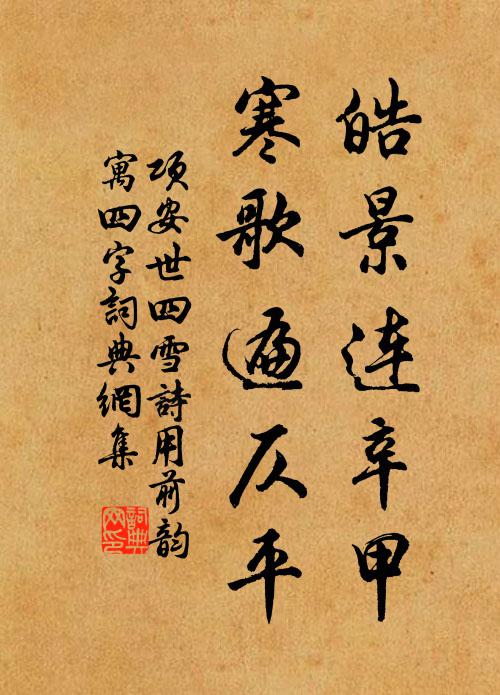 皓景连辛甲
寒歌遍仄平
项安世四雪詩用前韵
寓四字詞典網集